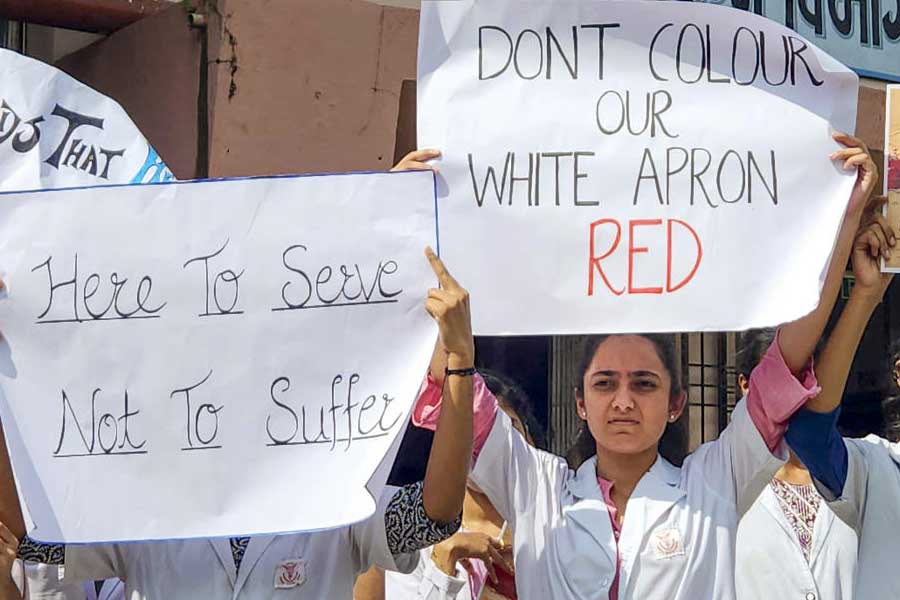 THAT
Here To Serve
Not To Suffer
DONT COLOUR
OUR
WHITE APRON
RED